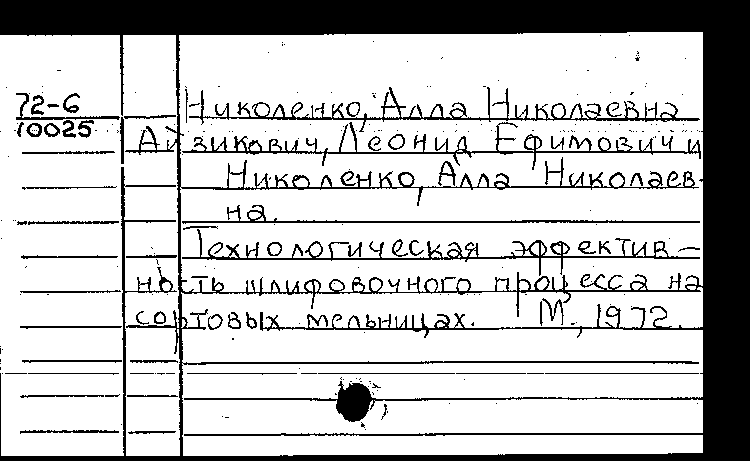 72-6
10025
Николенко, Алла Николаевна
Айзикович, Леонид Ефимович и
Николенко, Алла Николаев-
на.
Технологическая эффектив-
ность шлифовочного процесса на
сортовых мельницах. М., 1972.